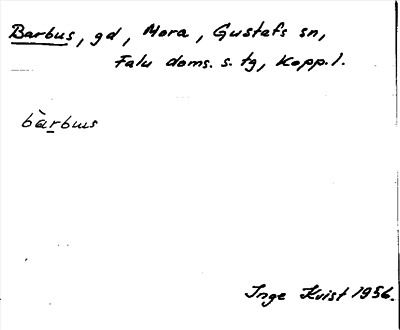 Barbus, gd, Mora, Gustafs sn,
Falu doms. s. tg, Kopp. l.
bàrbus
Inge Kvist 1956.